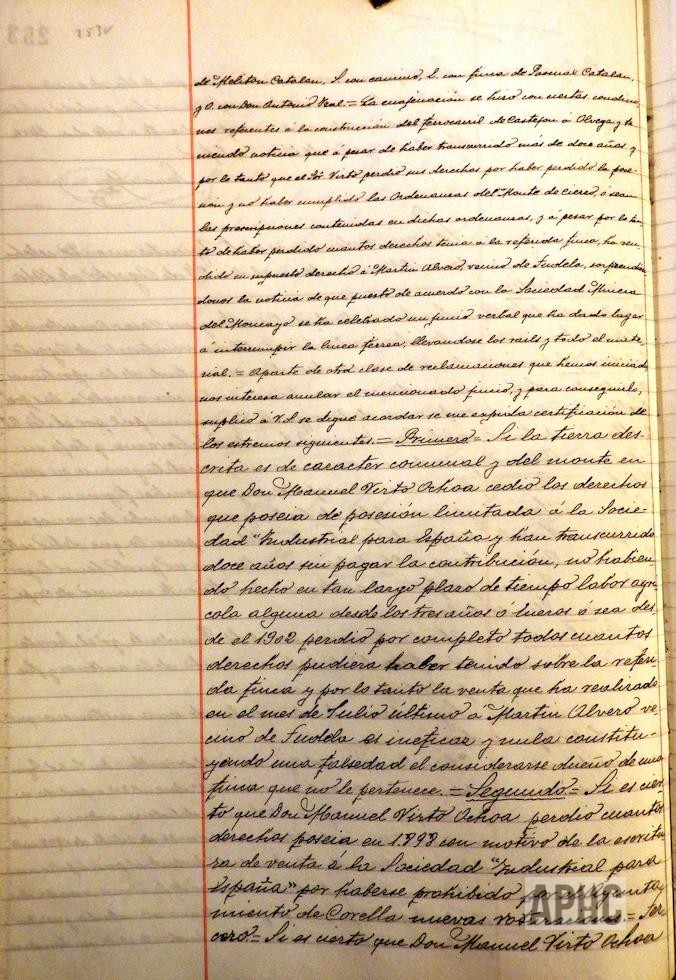 de Meliton Catalan, S. con camino, E. con finca de Pascual Catalan,
y O. con Don Antonio Real. = La enajenación se hizo con ciertas condicio
nes referentes á la construcción del ferrocarril de Castejon á Olvega y te
niendo noticia que á pesar de haber transcurrido más de doce años y
por lo tanto que el Sor. Virto perdió sus derechos por haber perdido la pose-
sión y no haber cumplido las Ordenanzas del Monte de Cierzo, ó sean
las prescripciones contenidas en dichas ordenanzas, y á pesar por lo tan
to de haber perdido cuantos derechos tenia á la referida finca, ha ven
dido su supuesto derecho á Martin Alvero, vecino de Tudela, sorprendien
donos la noticia de que puesto de acuerdo con la Sociedad Minera
del Moncayo se ha celebrado un juicio verbal que ha dado lugar
á interrumpir la linea ferrea, llevandose los rails y todo el mate
rial. = Aparte de otra clase de reclamaciones que hemos iniciado,
nos interesa anular el mencionado juicio, y para conseguirlo,
suplico á V.S. se digne acordar se me expida certificación de
los estremos siguientes. = Primero = Si la tierra des-
crita es de caracter comunal y del monte en
que Don Manuel Virto Ochoa cedió los derechos
que poseia de posesión limitada á la Socie-
dad "Industrial para España y han transcurrido
doce años sin pagar la contribución, no habien-
do hecho en tan largo plazo de tiempo labor agri
cola alguna desde los tres años ó sea des
de el 1902 perdió por completo todos cuantos
derechos pudiera haber tenido sobre la referi
da finca y por lo tanto la venta que ha realizado
en el mes de Julio último a Martin Alvero ve
cino de Tudela es ineficaz y nula constitu-
yendo una falsedad el considerarse dueño de una
finca que no le pertenece. = Segundo = Si es cier
to que Don Manuel Virto Ochoa perdió cuantos
derechos poseia en 1898 con motivo de la escritu
ra de venta á la Sociedad "Industrial para
España" por haberse prohibido por el Ayunta
miento de Corella nuevas = Ter
cero. = Si es cierto que Don Manuel Virto Ochoa
APHC